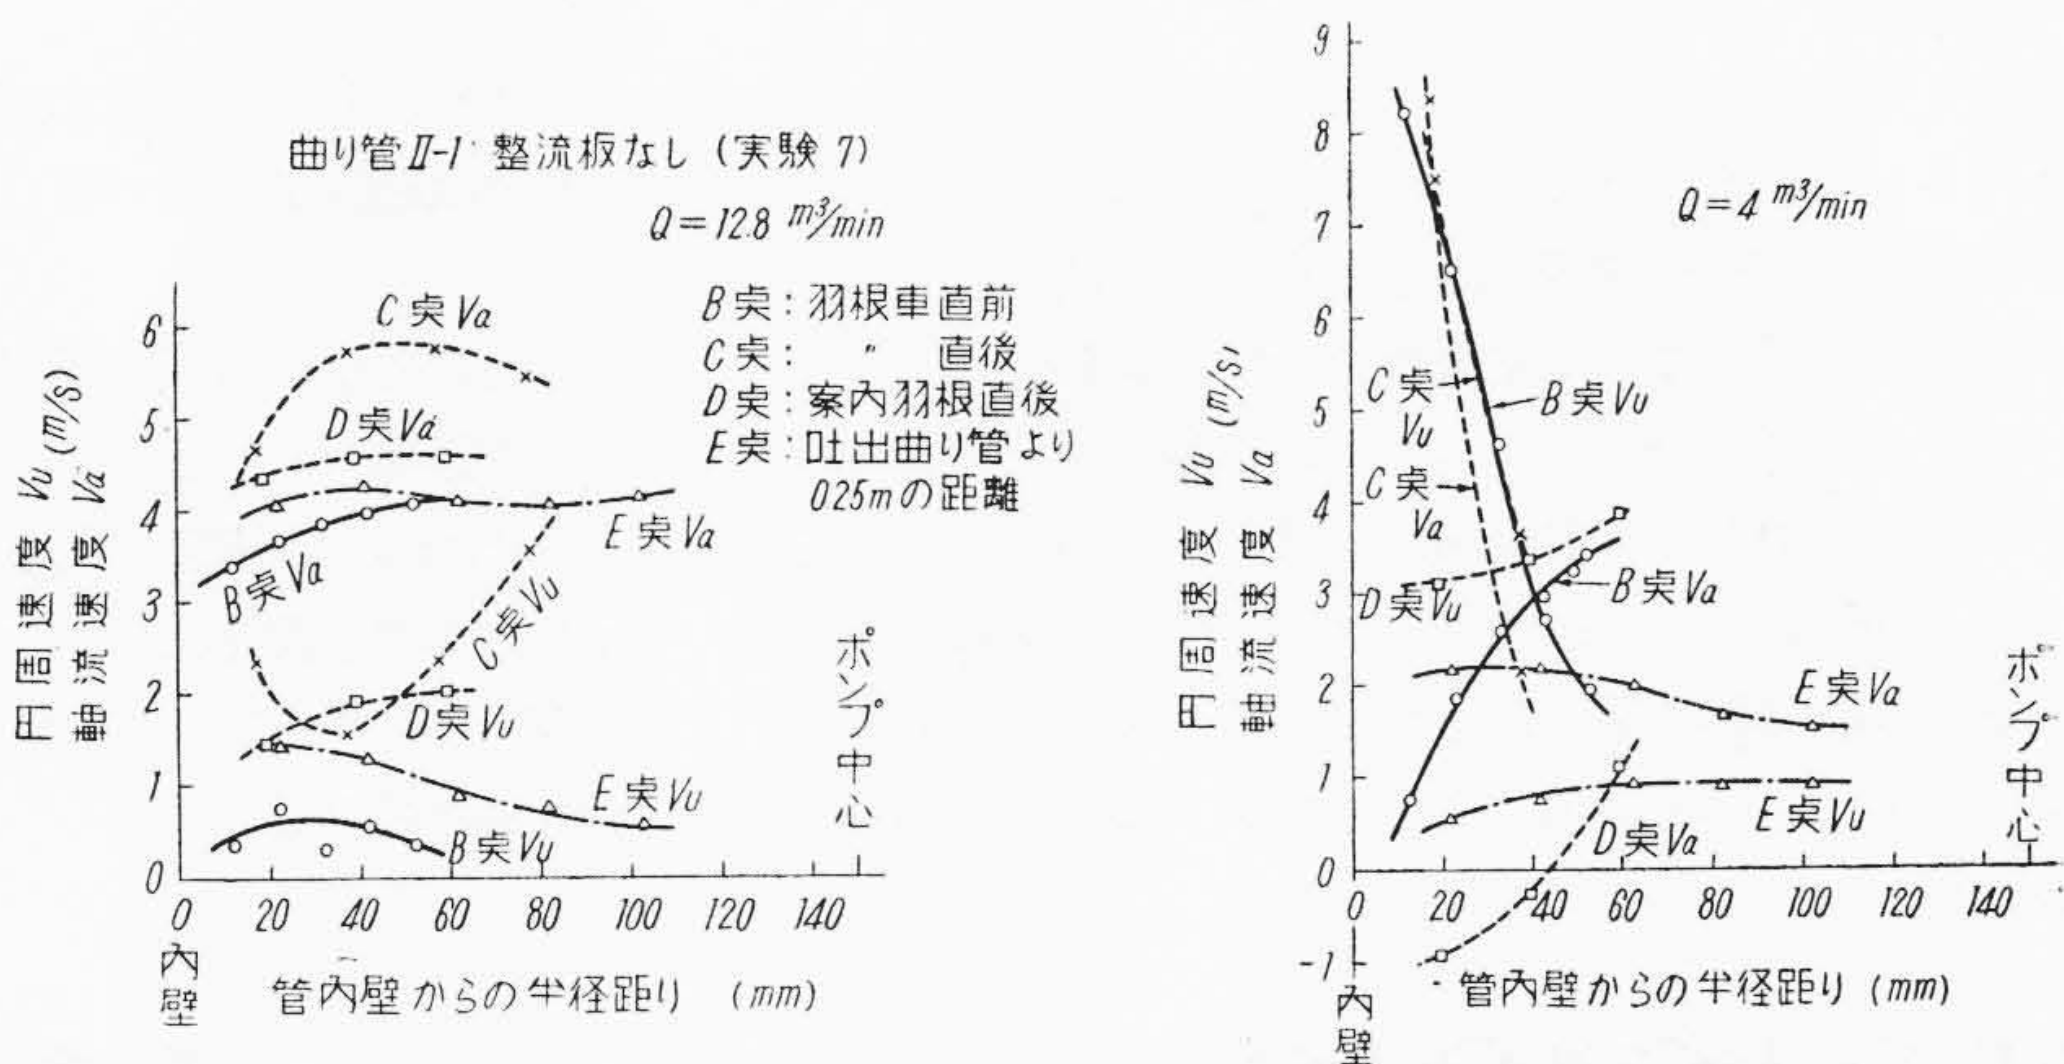 曲り管Ⅱ-1 整流板なし (実験 7)
Q=12.8 m³/min
B奌:羽根車直前
C奌: 〃 直後
D奌:案內羽根直後
E奌:吐出曲り管より
025mの距離
円周速度 Vu (m/s)
軸流速度 Va
6
5
4
3
2
1
0
C奌Va
D奌Va
E奌Va
B奌Va
C奌Vu
D奌Vu
E奌Vu
B奌Vu
ポンプ中心
0 20 40 60 80 100 120 140
內壁
管內壁からの半径距り (mm)
Q=4 m³/min
円周速度 Vu (m/s)
軸流速度 Va
9
8
7
6
5
4
3
2
1
0
-1
C奌
Vu
B奌Vu
C奌
Va
D奌Vu
B奌Va
E奌Va
E奌Vu
D奌Va
ポンプ中心
0 20 40 60 80 100 120 140
內壁
管內壁からの半径距り (mm)